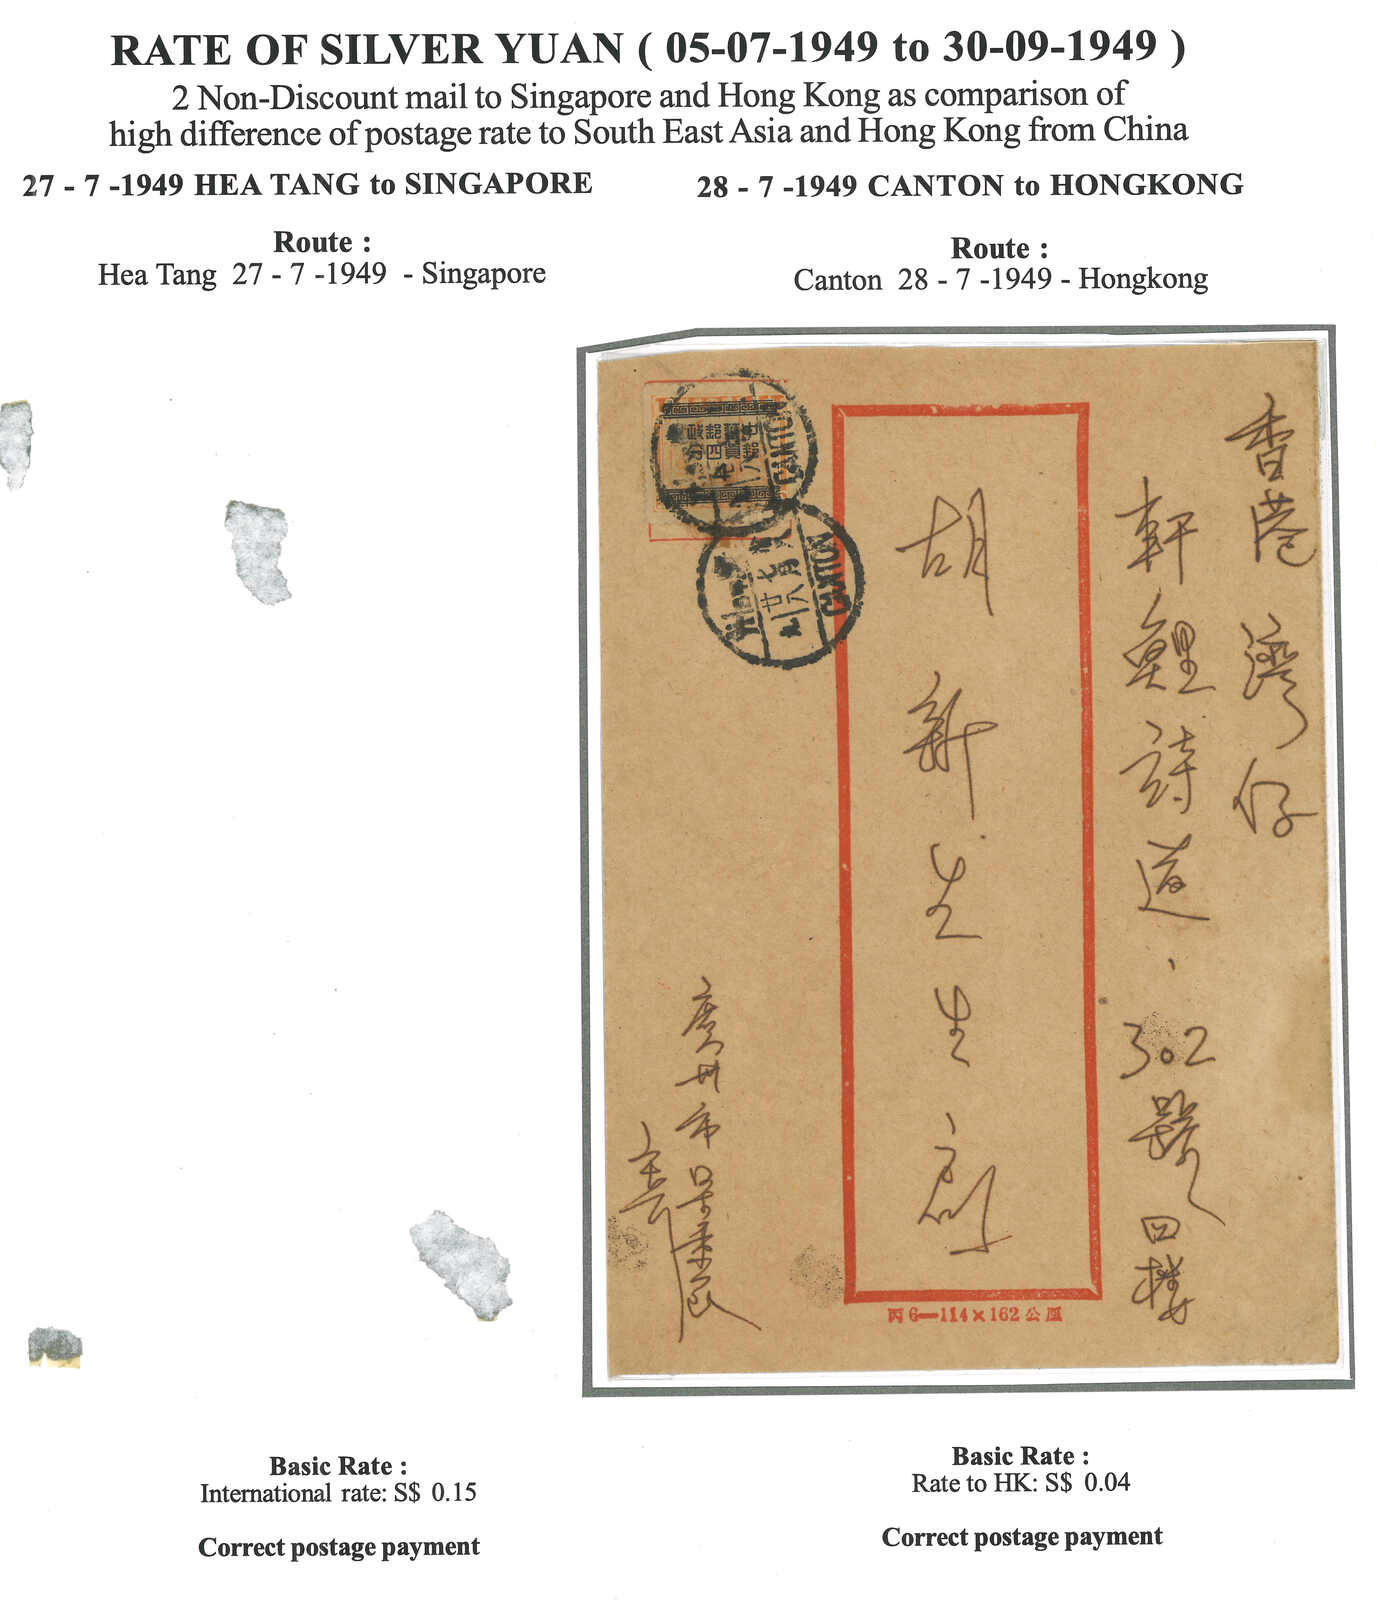 RATE OF SILVER YUAN ( 05-07-1949 to 30-09-1949 )
2 Non-Discount mail to Singapore and Hong Kong as comparison of
high difference of postage rate to South East Asia and Hong Kong from China
27 - 7 -1949 HEA TANG to SINGAPORE
Route :
Hea Tang 27 - 7 -1949 - Singapore
Basic Rate :
International rate: S$ 0.15
Correct postage payment
28 - 7 -1949 CANTON to HONGKONG
Route :
Canton 28 - 7 -1949 - Hongkong
香港灣仔
軒鯉詩道、302號四樓
胡新生生啟
廣州市
CANTON
CANTON
丙6—114×162公厘
Basic Rate :
Rate to HK: S$ 0.04
Correct postage payment